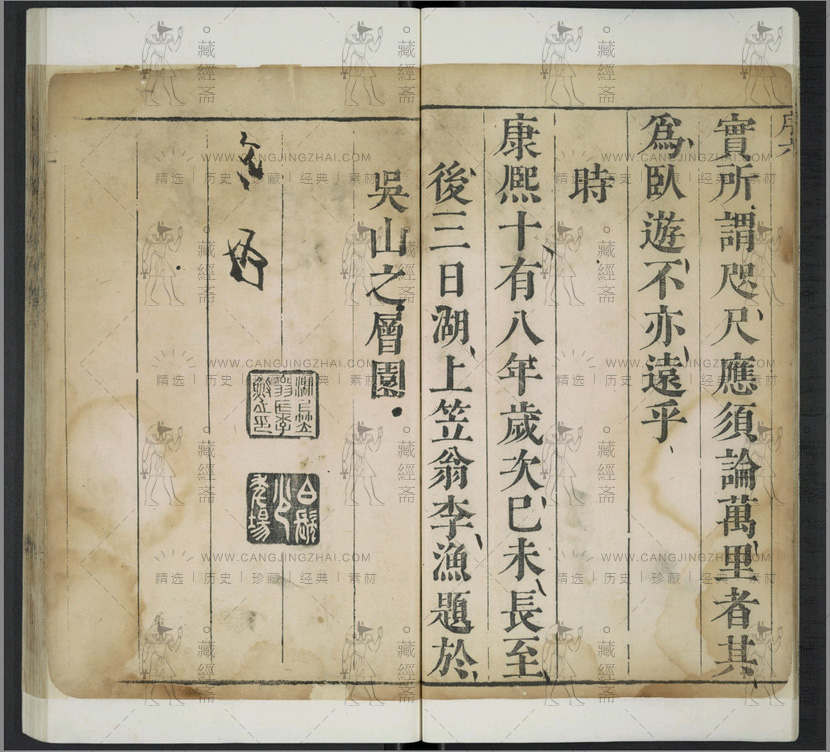 序六
實所謂咫尺應須論萬里者其
爲臥遊不亦遠乎
時
康熙十有八年歲次己未長至
後三日湖上笠翁李漁題於
吳山之層園
藏經斋
WWW.CANGJINGZHAI.COM
精选 | 历史 | 珍藏 | 经典 | 素材